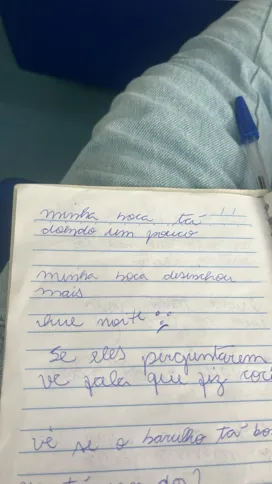 minha boca tá !!
doendo um pouco
minha boca desinchou
mais
que morte :(
Se eles perguntarem
vê fala que fiz
vê se o barulho tá